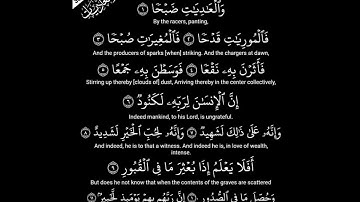 وَٱلْعَـٰدِيَـٰتِ ضَبْحًا ١
By the racers, panting,
فَٱلْمُورِيَـٰتِ قَدْحًا ٢ فَٱلْمُغِيرَٰتِ صُبْحًا ٣
And the producers of sparks [when] striking. And the chargers at dawn,
فَأَثَرْنَ بِهِۦ نَقْعًا ٤ فَوَسَطْنَ بِهِۦ جَمْعًا ٥
Stirring up thereby [clouds of] dust, Arriving thereby in the center collectively,
إِنَّ ٱلْإِنسَـٰنَ لِرَبِّهِۦ لَكَنُودٌ ٦
Indeed mankind, to his Lord, is ungrateful.
وَإِنَّهُۥ عَلَىٰ ذَٰلِكَ لَشَهِيدٌ ٧ وَإِنَّهُۥ لِحُبِّ ٱلْخَيْرِ لَشَدِيدٌ ٨
And indeed, he is to that a witness. And indeed he is, in love of wealth,
intense.
أَفَلَا يَعْلَمُ إِذَا بُعْثِرَ مَا فِى ٱلْقُبُورِ ٩
But does he not know that when the contents of the graves are scattered
وَحُصِّلَ مَا فِى ٱلصُّدُورِ ١٠ إِنَّ رَبَّهُم بِهِمْ يَوْمَئِذٍ لَّخَبِيرٌۢ ١١